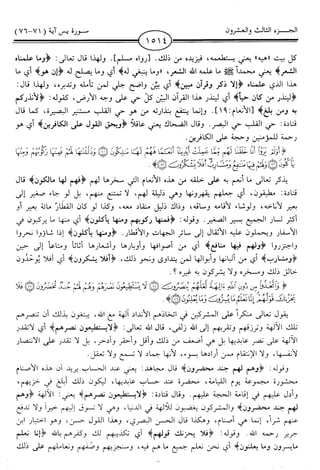 الجزء الثالث والعشرون ١٥١٤ سورة يس آية (٧١-٧٦)
كل بيت «هيه» يعني يستطعمه، فيزيده من ذلك. [رواه مسلم]. ولهذا قال تعالى: ﴿وما علمناه
الشعر﴾ يعني محمداً ﷺ ما علمه الله الشعر، ﴿وما ينبغي له﴾ أي وما يصلح له ﴿إن هو﴾ أي ما
هذا الذي علمناه ﴿إلا ذكر وقرآن مبين﴾ أي بيّن واضح جلي لمن تأمله وتدبره، ولهذا قال:
﴿لينذر من كان حياً﴾ أي لينذر هذا القرآن البيّن كلَّ حي على وجه الأرض، كقوله: ﴿لأنذركم
به ومن بلغ﴾ [الأنعام: ١٩]. وإنما ينتفع بنذارته من هو حي القلب مستنير البصيرة، كما قال
قتادة: حي القلب حي البصر. وقال الضحاك يعني عاقلاً ﴿ويحق القول على الكافرين﴾ أي هو
رحمة للمؤمنين وحجة على الكافرين.
﴿أَوَلَمْ يَرَوْا أَنَّا خَلَقْنَا لَهُم مِّمَّا عَمِلَتْ أَيْدِينَا أَنْعَامًا فَهُمْ لَهَا مَالِكُونَ وَذَلَّلْنَاهَا لَهُمْ فَمِنْهَا رَكُوبُهُمْ وَمِنْهَا
يَأْكُلُونَ وَلَهُمْ فِيهَا مَنَافِعُ وَمَشَارِبُ أَفَلَا يَشْكُرُونَ﴾
يذكر تعالى ما أنعم به على خلقه من هذه الأنعام التي سخرها لهم ﴿فهم لها مالكون﴾ قال
قتادة: مطيقون، أي جعلهم يقهرونها وهي ذليلة لهم، لا تمتنع منهم، بل لو جاء صغير إلى
بعير لأناخه، ولو شاء لأقامه وساقه، وذاك ذليل منقاد معه، وكذا لو كان القطار مائة بعير أو
أكثر لسار الجميع بسير الصغير. وقوله: ﴿فمنها ركوبهم ومنها يأكلون﴾ أي منها ما يركبون في
الأسفار ويحملون عليه الأثقال إلى سائر الجهات والأقطار. ﴿ومنها يأكلون﴾ إذا شاؤوا نحروا
واجتزروا ﴿ولهم فيها منافع﴾ أي من أصوافها وأوبارها وأشعارها أثاثاً ومتاعاً إلى حين
﴿ومشارب﴾ أي من ألبانها وأبوالها لمن يتداوى ونحو ذلك، ﴿أفلا يشكرون﴾ أي أفلا يُوَحِّدُون
خالق ذلك ومسخره ولا يشركون به غيره؟.
﴿وَاتَّخَذُوا مِن دُونِ اللَّهِ ءَالِهَةً لَّعَلَّهُمْ يُنصَرُونَ لَا يَسْتَطِيعُونَ نَصْرَهُمْ وَهُمْ لَهُمْ جُندٌ مُّحْضَرُونَ فَلَا
يَحْزُنكَ قَوْلُهُمْ إِنَّا نَعْلَمُ مَا يُسِرُّونَ وَمَا يُعْلِنُونَ﴾
يقول تعالى منكراً على المشركين في اتخاذهم الأنداد آلهة مع الله، يبتغون بذلك أن تنصرهم
تلك الآلهة وترزقهم وتقربهم إلى الله زلفى، قال الله تعالى: ﴿لا يستطيعون نصرهم﴾ أي لا تقدر
الآلهة على نصر عابديها بل هي أضعف من ذلك وأقل وأحقر وأدحر، بل لا تقدر على الانتصار
لأنفسها، ولا الانتقام ممن أرادها بسوء، لأنها جماد لا تسمع ولا تعقل.
وقوله: ﴿وهم لهم جند محضرون﴾ قال مجاهد: يعني عند الحساب يريد أن هذه الأصنام
محشورة مجموعة يوم القيامة، محضرة عند حساب عابديها، ليكون ذلك أبلغ في حزنهم،
وأدل عليهم في إقامة الحجة عليهم. وقال قتادة: ﴿لا يستطيعون نصرهم﴾ يعني: الآلهة ﴿وهم
لهم جند محضرون﴾ والمشركون يغضبون للآلهة في الدنيا، وهي لا تسوق إليهم خيراً ولا تدفع
عنهم شراً، إنما هي أصنام، وهكذا قال الحسن البصري، وهذا القول حسن، وهو اختيار ابن
جرير رحمه الله. وقوله: ﴿فلا يحزنك قولهم﴾ أي تكذيبهم لك وكفرهم بالله ﴿إنا نعلم
ما يسرون وما يعلنون﴾ أي نحن نعلم جميع ما هم فيه، وسنجزيهم وصفهم ونعاملهم على ذلك